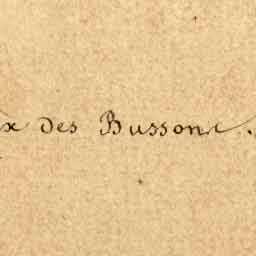 x des Bussons.